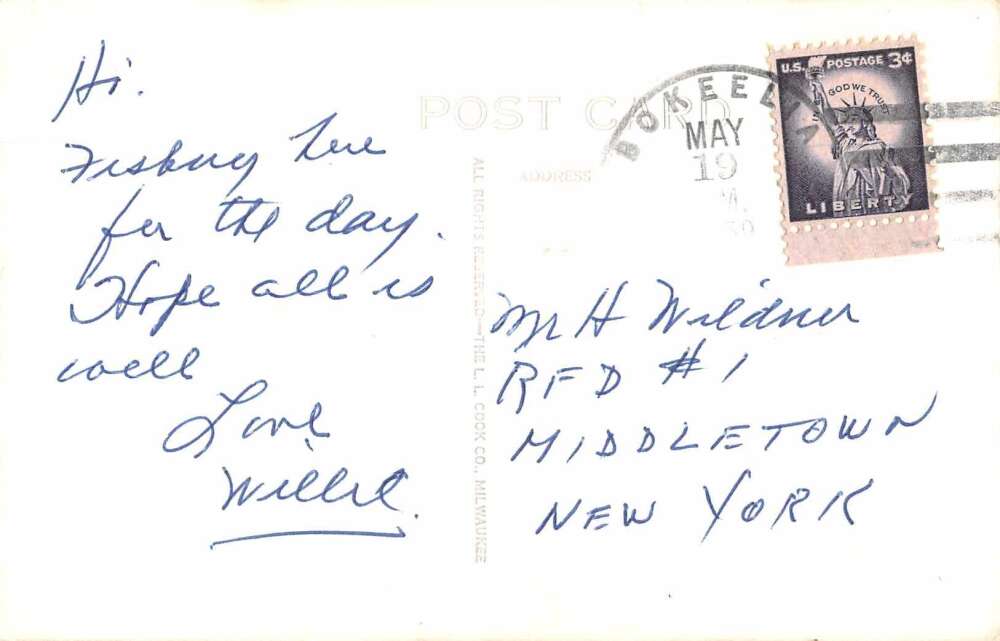 Hi.
Fishing here
for the day.
Hope all is
well
Love
Willie.
POST CARD
ADDRESS
ALL RIGHTS RESERVED—THE L. L. COOK CO., MILWAUKEE
BOKEELIA
MAY
19
U.S. POSTAGE 3¢
IN GOD WE TRUST
LIBERTY
Mr H Wildner
RFD #1
MIDDLETOWN
NEW YORK